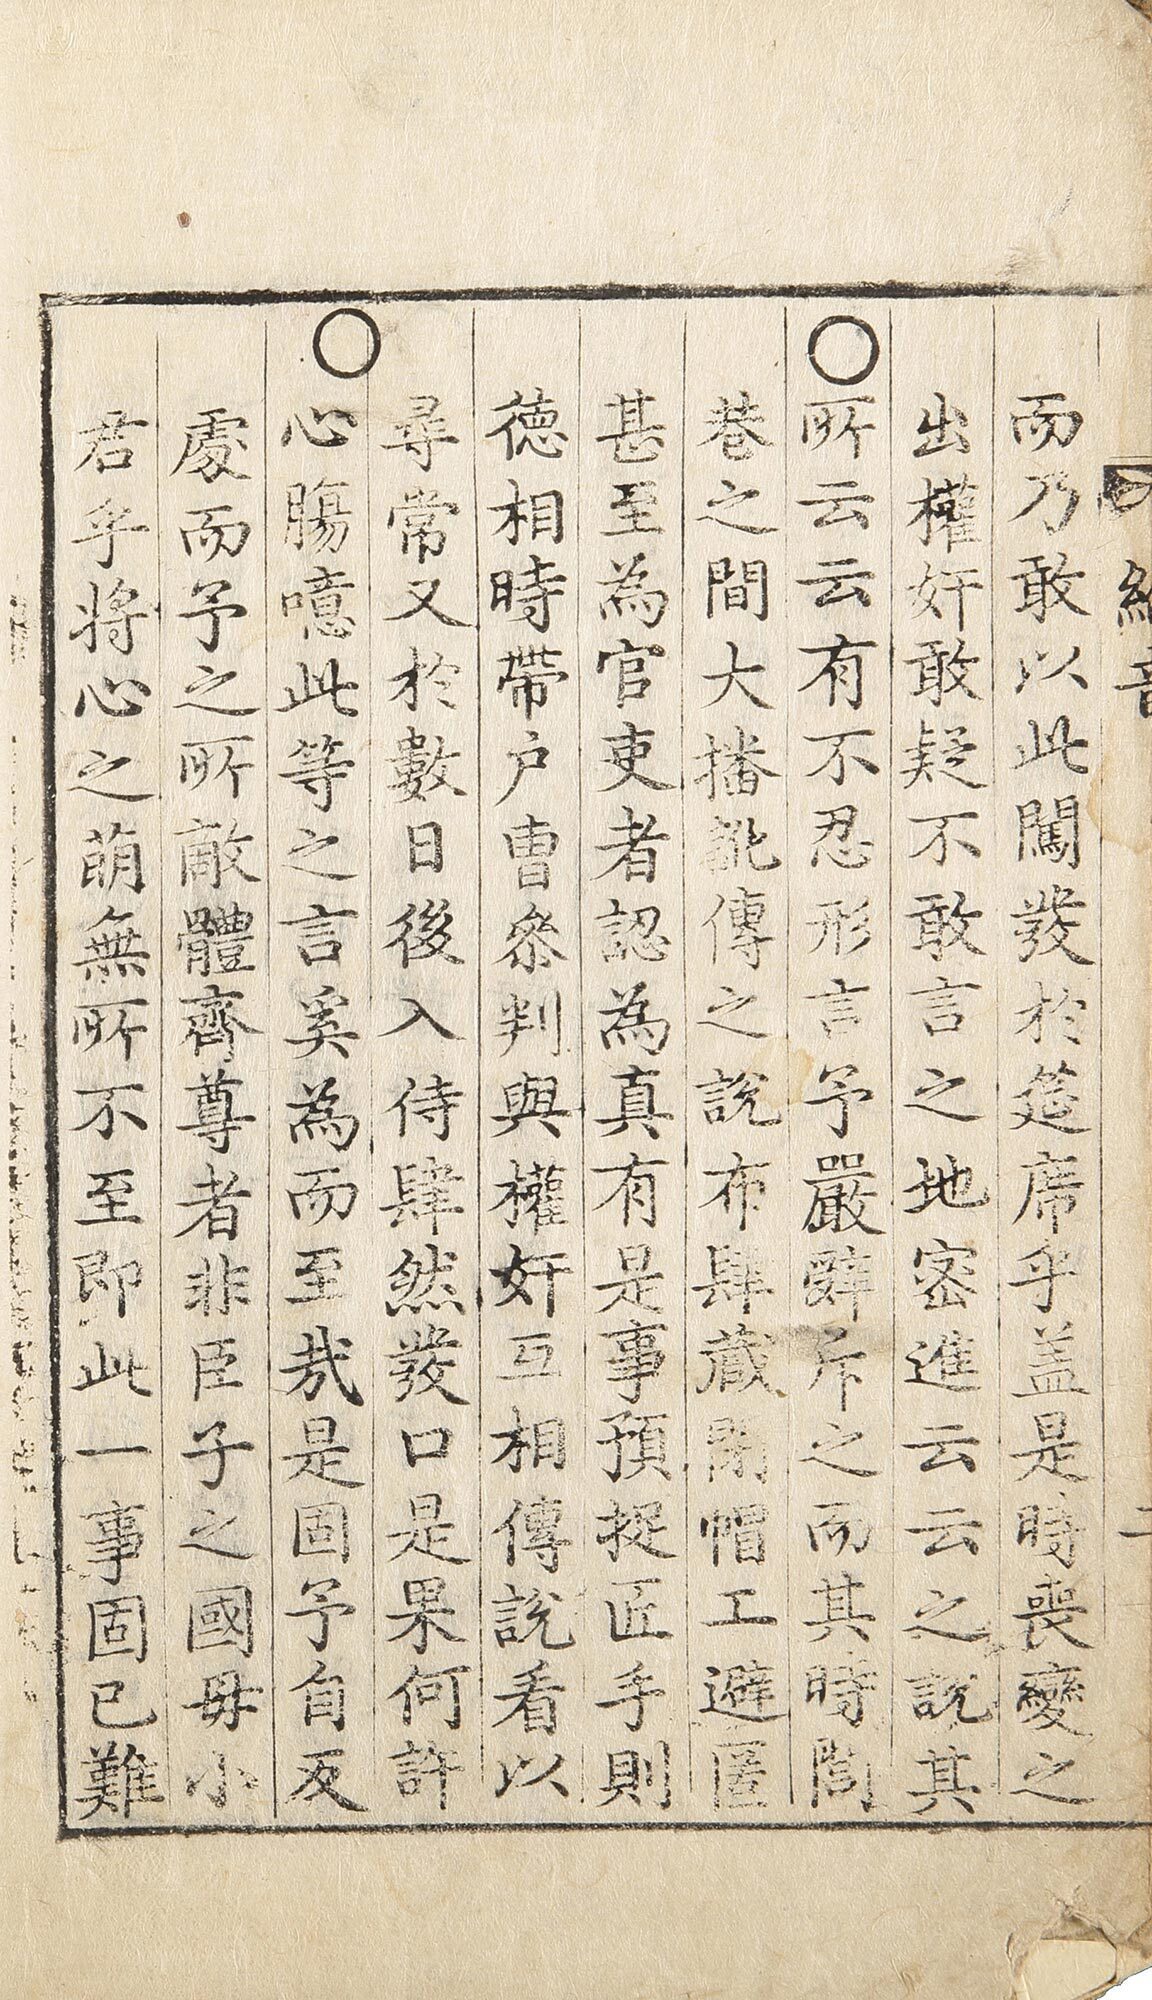 綸音
二
而乃敢以此闖發於筵席乎盖是時喪變之
出權奸敢疑不敢言之地密進云云之說其
○所云云有不忍形言予嚴辭斥之而其時閭
巷之間大播訛傳之說布肆藏閉帽工避匿
甚至為官吏者認為真有是事預捉匠手則
德相時帶户曹叅判與權奸互相傳說看以
尋常又於數日後入侍肆然發口是果何許
○心膓噫此等之言奚為而至㢤是固予自反
處而予之所敵體齊尊者非臣子之國毋小
君乎將心之萌無所不至即此一事固已難